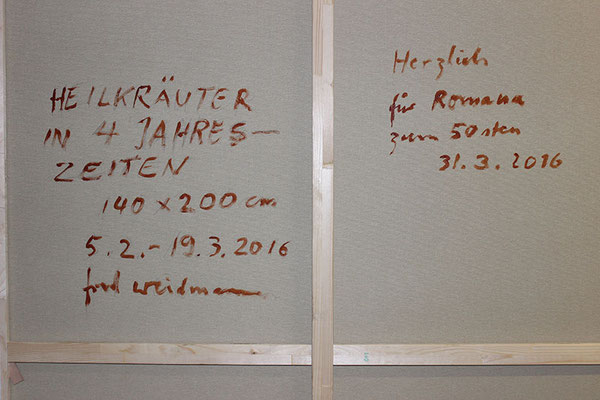 HEILKRÄUTER
IN 4 JAHRES-
ZEITEN
140 x 200 cm
5.2.-19.3.2016
fred weidmann
Herzlich
für Romana
zum 50sten
31.3.2016